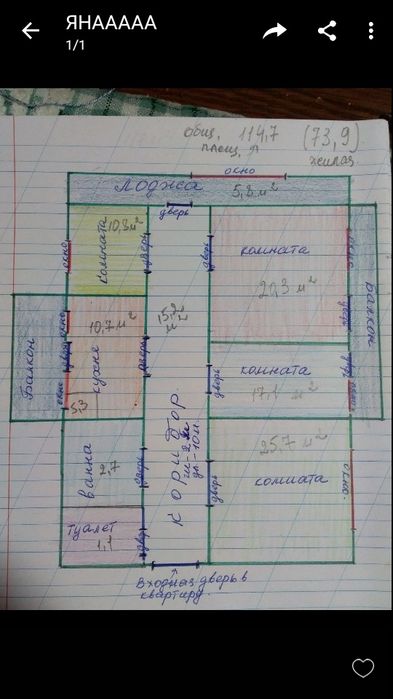 ЯНААААА
1/1
общ. 114,7 (73,9)
площ. жилая
окно
Лоджа 5,8 м²
дверь
комната 10,3 м²
окно
дверь
дверь
комната
20,3 м²
дверь
Балкон
окно
10,7 м²
кухня
дверь
окно
5,3
дверь
Балкон
15,2 м²
коридор
дл-10м.
комната
17,1 м²
дверь
дверь
ванна
2,7
дверь
25,7 м²
комната
дверь
окно
туалет
1,1
дверь
Входная дверь в
квартиру.